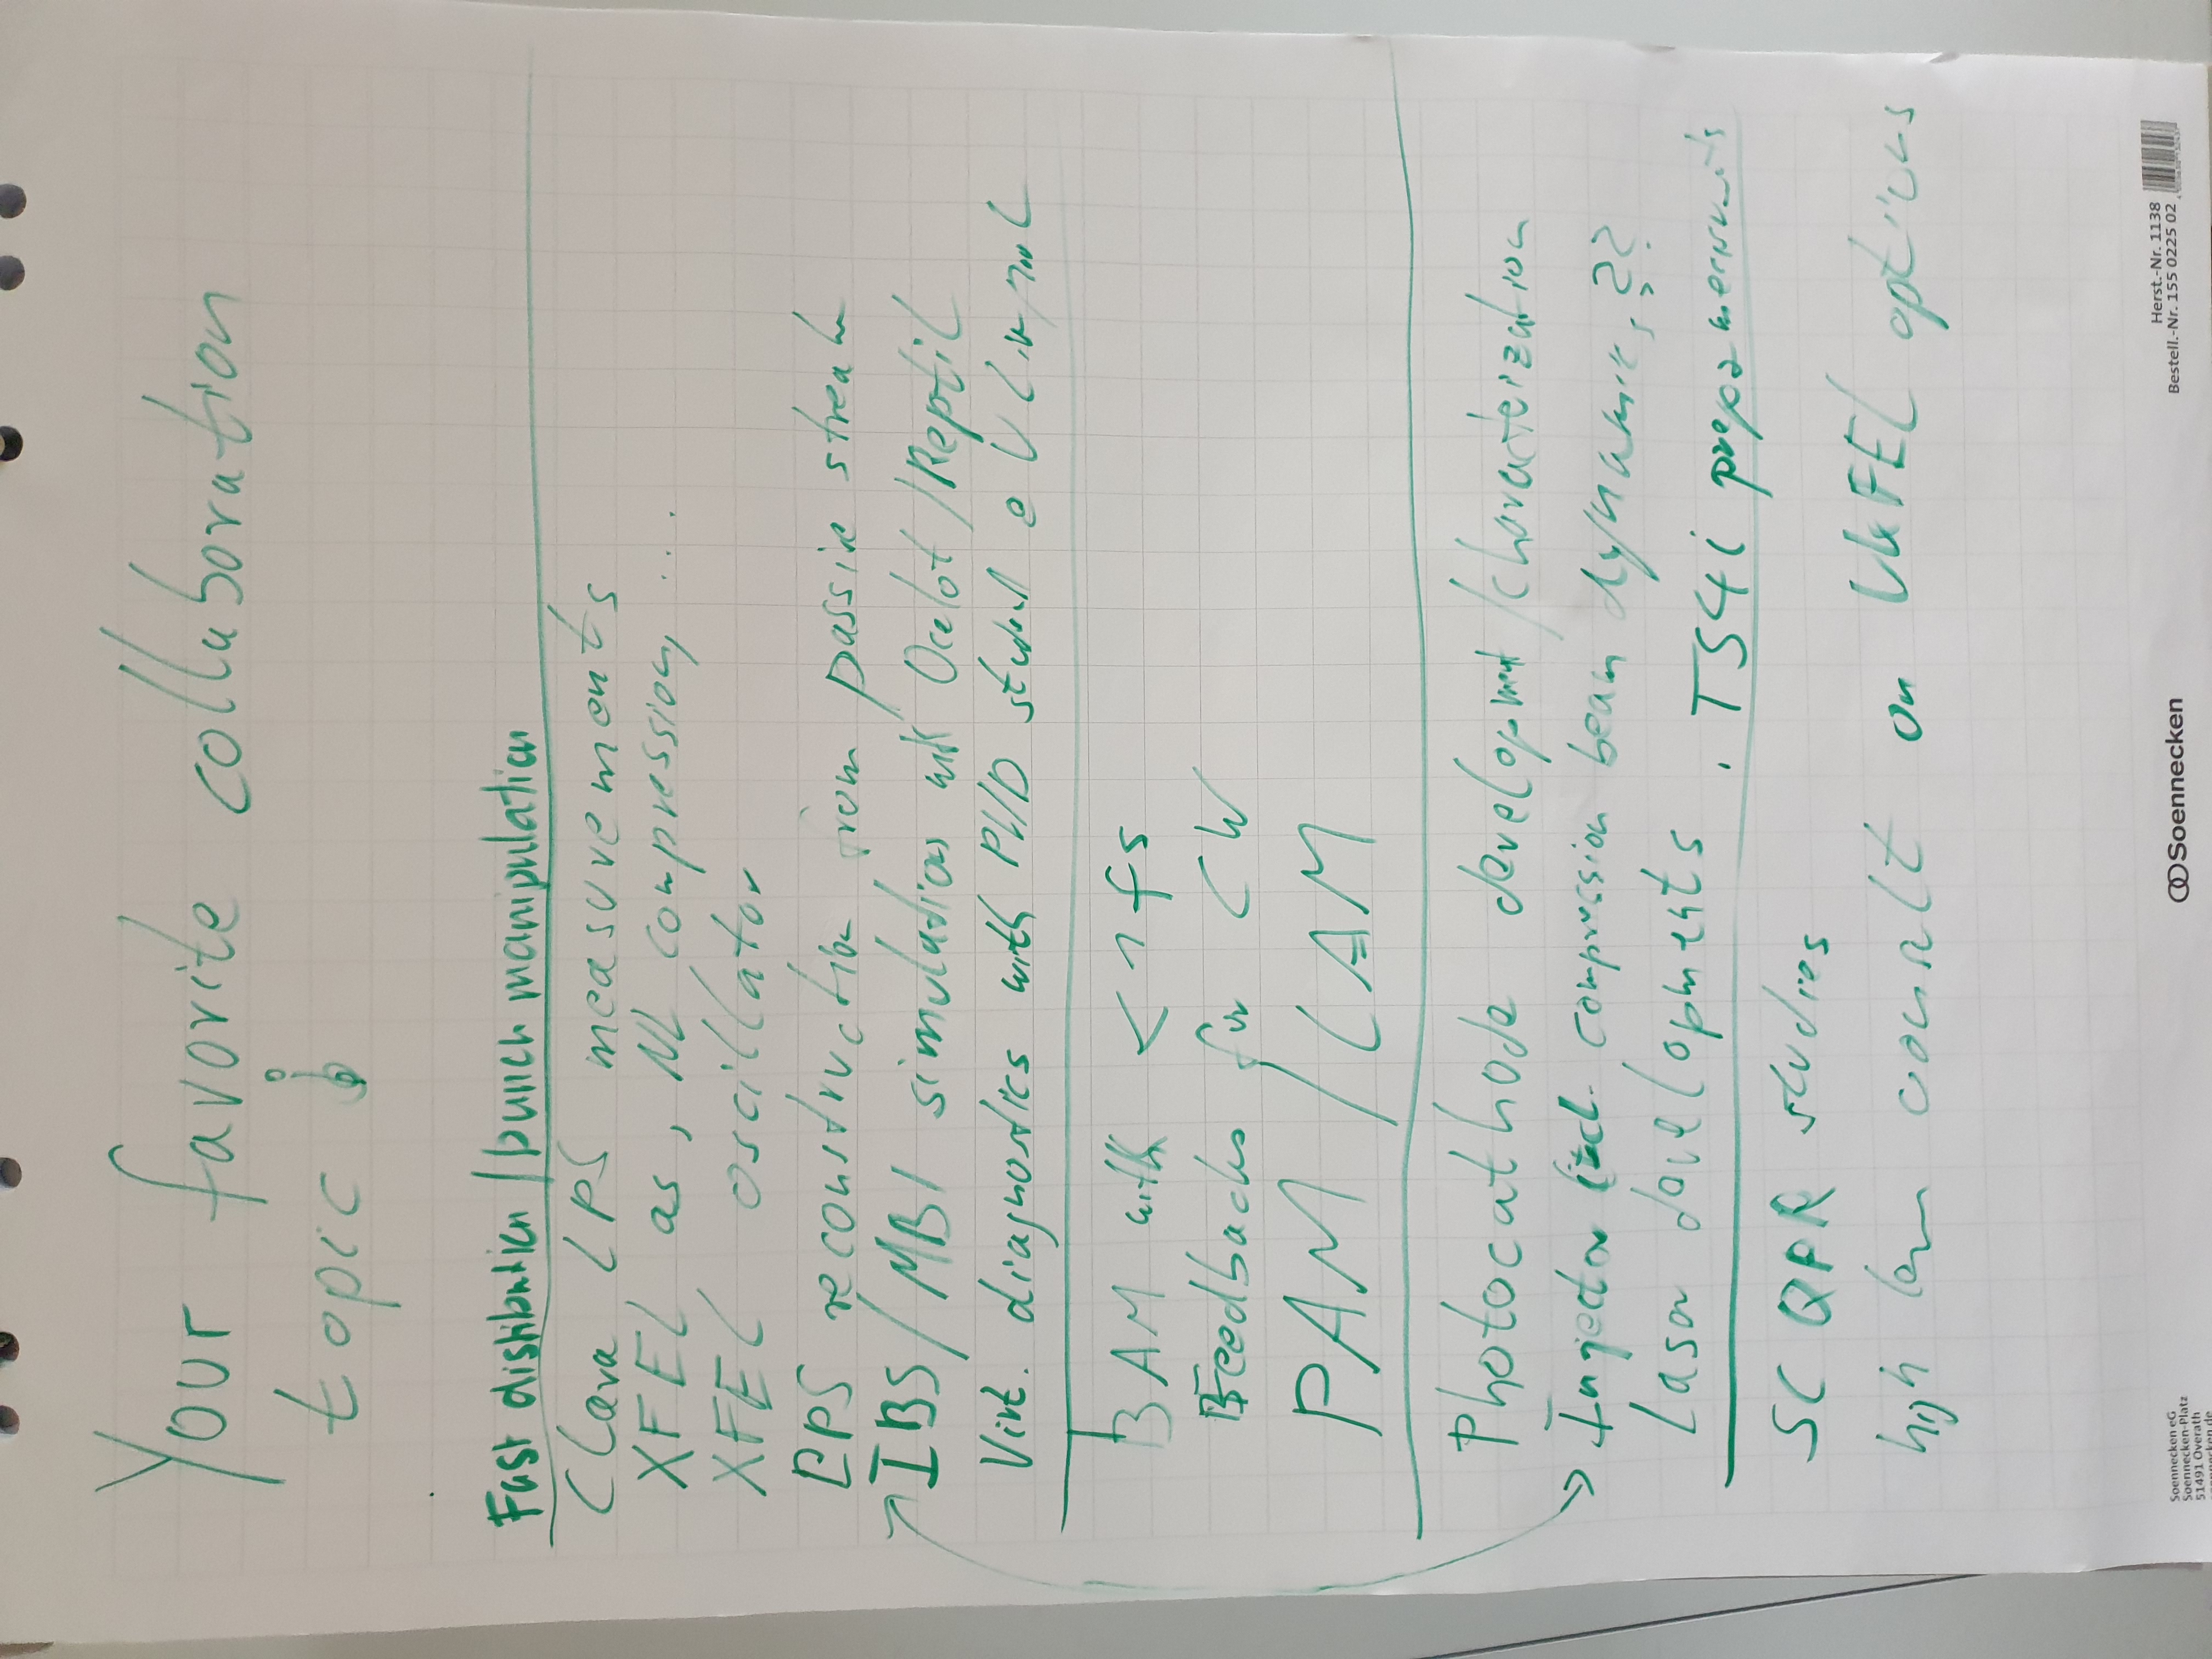 Your favorite collaboration
topic
Fast distribution / bunch manipulation
Clara LPS measurements
XFEL as, NL compression, ...
XFEL oscillator
LPS reconstruction from passive streak
IBS/MBI simulations with Ocelot/Reptil
Virt. diagnostics with PhD student @ U Liverpool
BAM with < 1 fs
Feedbacks for CW
PAM / LAM
Photocathode development/characterization
Injector incl. compression beam dynamics, ??
Laser developments . TS4i preparements
SC QPR studies
high on UKFEL options
Herst.-Nr. 1138
Bestell.-Nr. 155 0225 02
Soennecken
Soennecken eG
Soennecken-Platz
51491 Overath